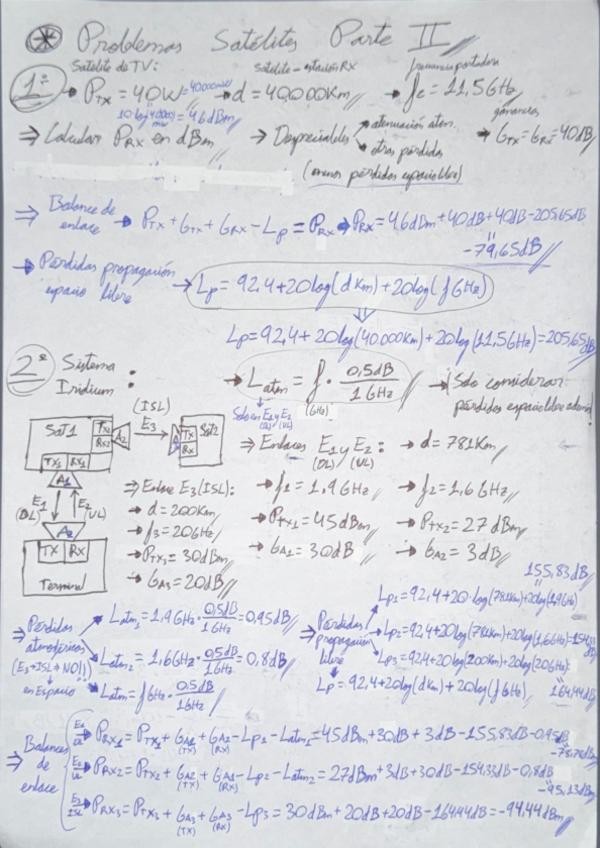 * Problemas Satélites Parte II
Satélite de TV: satélite - estación RX frecuencia portadora
1º → P_TX = 40W = 40000mW → d = 40000Km → f_c = 11,5GHz
10log(40000) = 46dBm ganancias
mW
⇒ Calcular P_RX en dBm ⇒ Despreciables → atenuación atm. → G_TX = G_RX = 40dB
→ otras pérdidas
(menos pérdidas espacio libre)
⇒ Balance de enlace → P_TX + G_TX + G_RX - L_p = P_RX → P_RX = 46dBm + 40dB + 40dB - 205,65dB
"
-79,65dB
→ Pérdidas propagación espacio libre → L_p = 92,4 + 20log(d Km) + 20log(f GHz)
⇓
L_p = 92,4 + 20log(40.000Km) + 20log(11,5GHz) = 205,65dB
2º Sistema Iridium: → L_atm = f · 0,5dB/1GHz → (Solo considerar pérdidas espacio libre
(GHz)
Solo en E1 y E2
(DL) (UL)
(ISL)
E3
Sat1 TX2 RX2 A2 TX RX Sat2
TX1 RX1
A1
E1 (DL) E2 (UL)
A2
TX RX
Terminal
⇒ Enlaces E1 y E2: → d = 781Km
(DL) (UL)
⇒ Enlace E3 (ISL): → f1 = 1,9GHz → f2 = 1,6GHz
→ d = 200Km
→ f3 = 20GHz → P_TX1 = 45dBm → P_TX2 = 27dBm
→ P_TX3 = 30dBm → G_A1 = 30dB → G_A2 = 3dB
→ G_A3 = 20dB
155,83dB
⇒ Pérdidas atmosféricas (E3 → ISL → NO!!) en Espacio
→ L_atm1 = 1,9GHz · 0,5dB/1GHz = 0,95dB
→ L_atm2 = 1,6GHz · 0,5dB/1GHz = 0,8dB
→ L_atm = f GHz · 0,5dB/1GHz
⇒ Pérdidas propagación libre
→ L_p1 = 92,4 + 20·log(781Km) + 20log(1,9GHz)
→ L_p2 = 92,4 + 20log(781Km) + 20log(1,6GHz) = 154,33dB
→ L_p3 = 92,4 + 20log(200Km) + 20log(20GHz)
164,44dB
L_p = 92,4 + 20log(d Km) + 20log(f GHz)
⇒ Balances de enlace
E1 → P_RX1 = P_TX1 + G_A1 (TX) + G_A2 (RX) - L_p1 - L_atm1 = 45dBm + 30dB + 3dB - 155,83dB - 0,95dB
-78,78dBm
E2 UL → P_RX2 = P_TX2 + G_A2 (TX) + G_A1 (RX) - L_p2 - L_atm2 = 27dBm + 3dB + 30dB - 154,33dB - 0,8dB
-95,13dBm
E3 ISL → P_RX3 = P_TX3 + G_A3 (TX) + G_A3 (RX) - L_p3 = 30dBm + 20dB + 20dB - 164,44dB = -94,44dBm